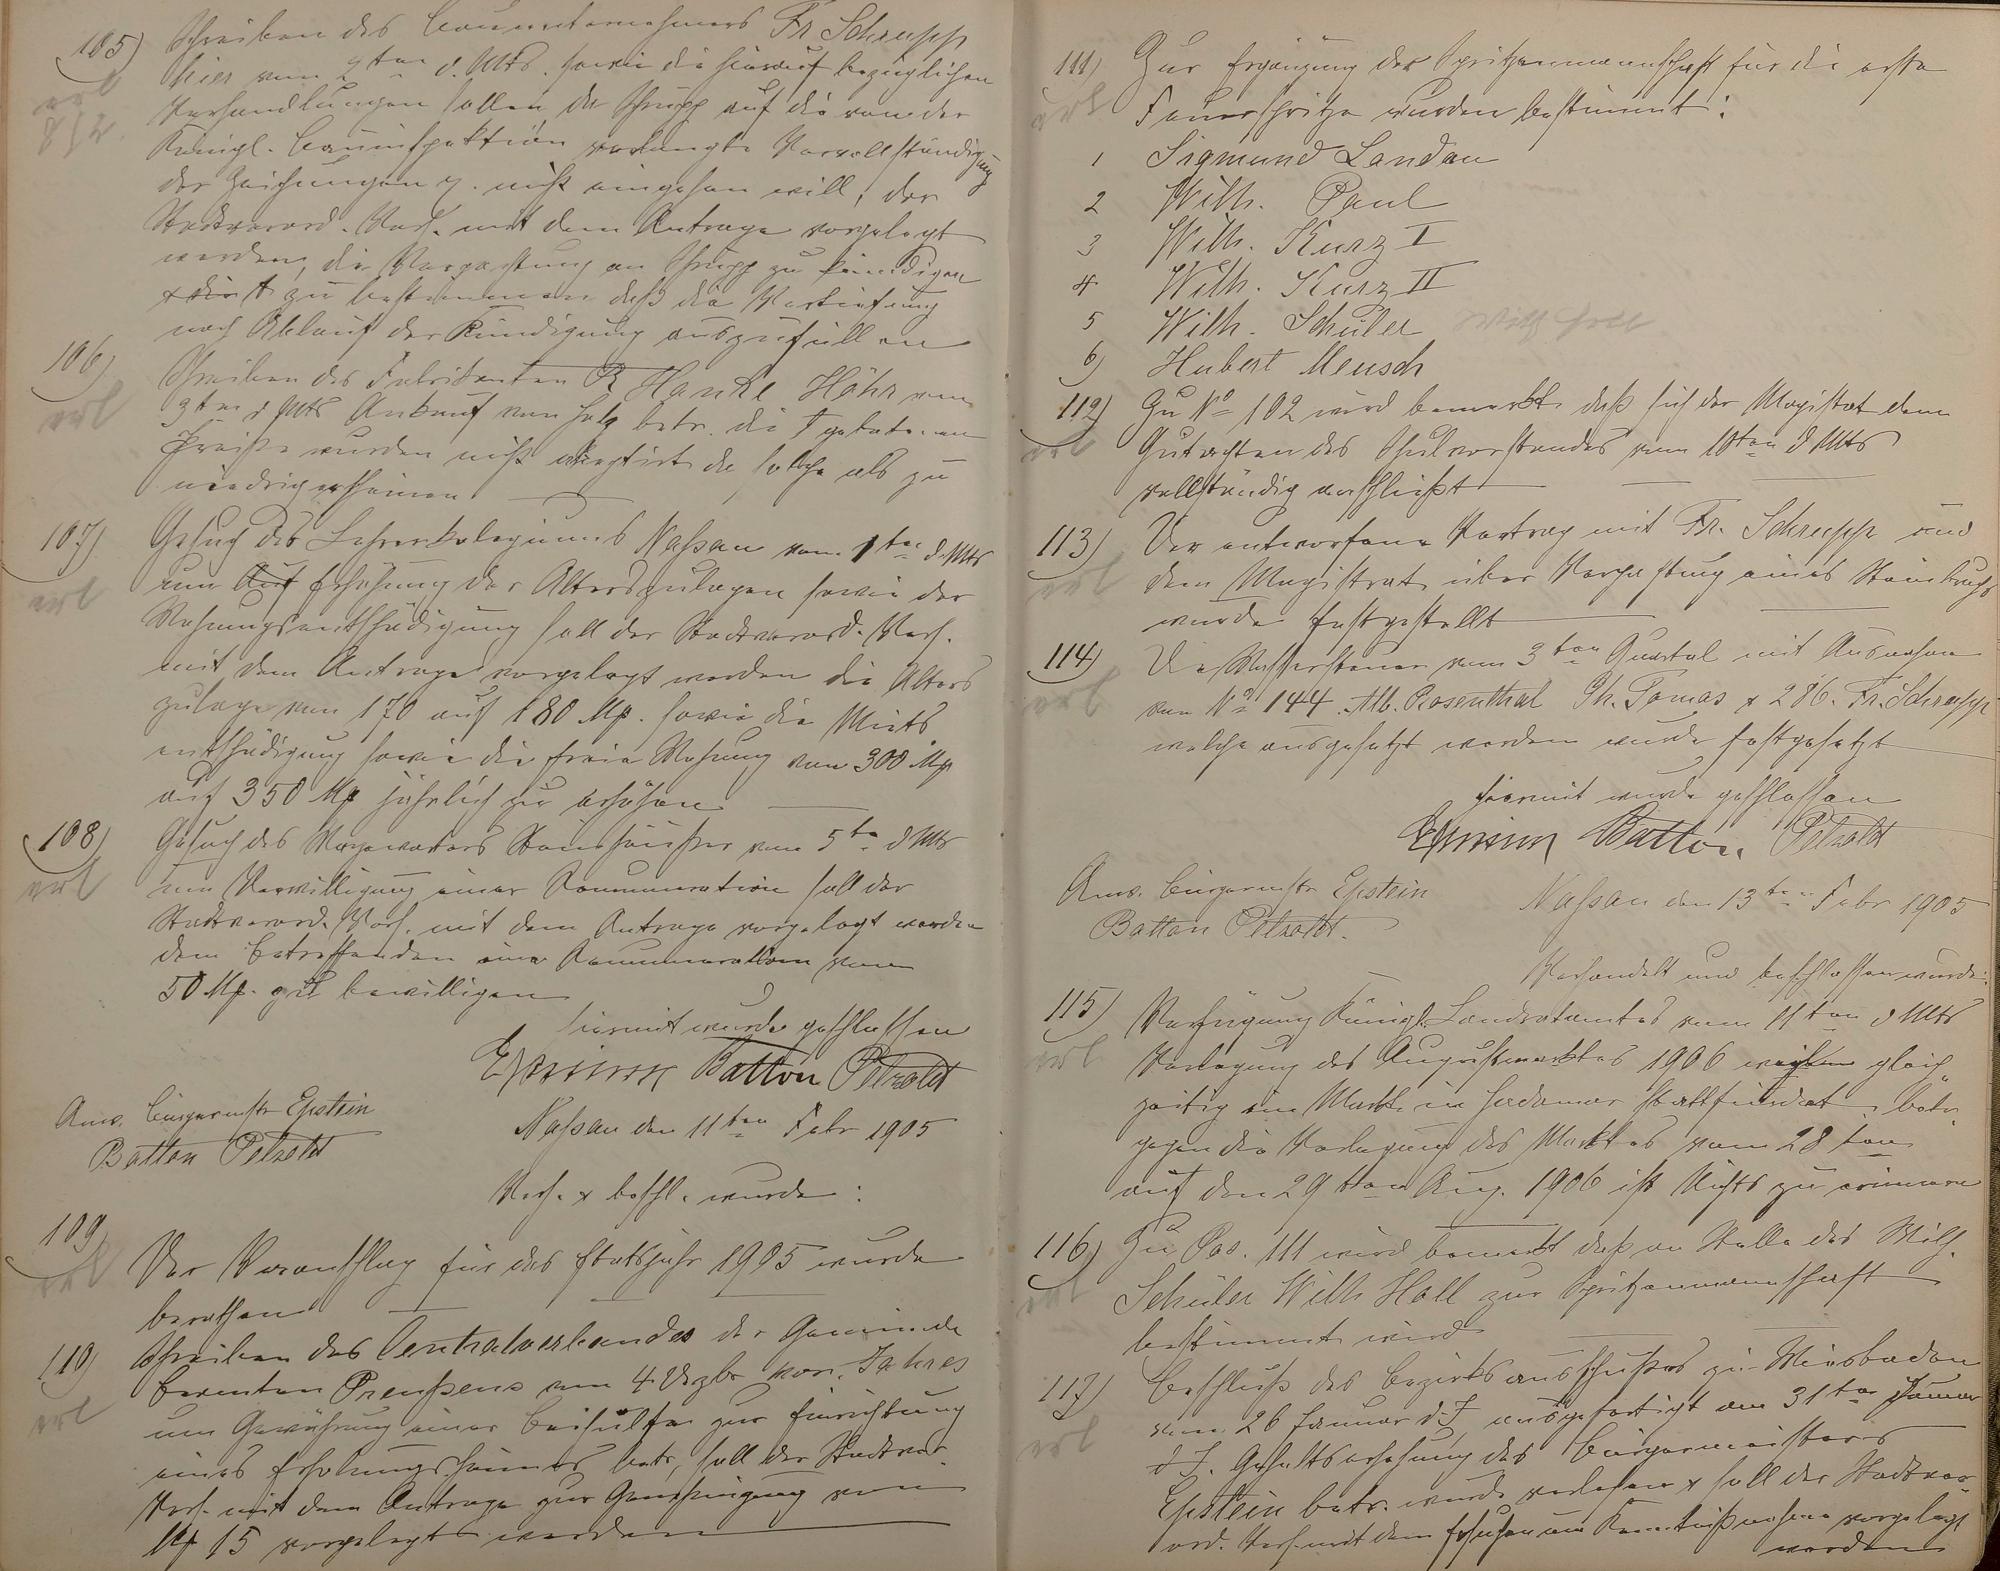 105) Schreiben des Bauunternehmers Fr Schrupp
hier vom 2ten d. Mts. sowie die hierauf bezüglichen
Verhandlungen sollen, da Schrupp auf die von der
Königl. Bauinspektion verlangte Vervollständigung
der Zeichnungen p. nicht eingehen will, der
Stadtverord. Vers. mit dem Antrage vorgelegt
werden, die Verpachtung an Schrupp zu kündigen
zu bestimmen daß die Vertiefung
nach Ablauf der Kündigung auszufüllen
106) Schreiben des Fabrikanten R Hanke Höhr vom
9ten d Mts Ankauf von Holz betr. die gebotenen
Preise wurden nicht akzeptirt da solche als zu
niedrig erscheinen
107) Gesuch des Lehrerkolegiums Naßau vom 1ten d. Mts
um Erhöhung der Alterszulagen sowie der
Wohnungsentschädigung soll der Stadtverord. Vers.
mit dem Antrage vorgelegt werden die Alters
zulage von 170 auf 180 Mk. sowie die Miets
entschädigung sowie die freie Wohnung von 300 Mk
auf 350 Mk jährlich zu erhöhen
108) Gesuch des vom 5ten d Mts
um Verwilligung einer Remuneration soll der
Stadtverord. Vers. mit dem Antrage vorgelegt werden
dem Betreffenden eine Remuneration von
50 Mk. zu bewilligen
hiermit wurde geschlossen
Epstein Batton Petzoldt
Anw. Bürgermstr Epstein
Batton Petzoldt
Naßau den 11ten Febr 1905
Verh. & beschl. wurde:
109 Der Voranschlag für das Etatsjahr 1905 wurde
berathen
110) Schreiben des Centralverbandes der Gemeinde
beamten Preußens vom 4 Dezbr vor. Jahres
um Gewährung einer Beihülfe zur Einrichtung
eines Erholungsheimes betr, soll der Stadtver.
Vers. mit dem Antrage zur Genehmigung von
Mk 15 vorgelegt werden
111) Zur Ergänzung der Spritzenmannschaft für die erste
Feuerspritze wurden bestimmt:
1 Sigmund Landau
2 Wilh. Paul
3 Wilh. Kurz I
4 Wilh. Kurz II
5 Wilh. Schüler Wilh Holl
6) Hubert Meusch
112) Zu No 102 wird bemerkt daß sich der Magistrat dem
Gutachten des Schulvorstandes vom 10ten d Mts
vollständig anschließt
113) Der entworfene Vertrag mit Fr. Schrupp und
dem Magistrat über Verpachtung eines Steinbruchs
wurde festgestellt
114) Die Wassersteuer vom 3ten Quartal mit Ausnahme
von No 144 Alb. Rosenthal Ch. Tomas & 286. Fr. Schrupp
welche ausgesetzt werden wurde festgesetzt
hiermit wurde geschlossen
Epstein Batton Petzoldt
Anw. Bürgermstr Epstein
Batton Petzoldt.
Naßau den 13ten Febr 1905
Verhandelt und beschlossen wurde:
115) Verfügung Königl. Landratamtes vom 11ten d Mts
Verlegung des Augustmarktes 1906 gleich
zeitig ein Markt in Hadamar stattfindet, betr.
gegen die Verlegung des Marktes vom 28ten
auf den 29ten Aug. 1906 ist Nichts zu erinnern
116) Zu Pos. 111 wird bemerkt daß an Stelle des Wilh.
Schüler Wilh Holl zur Spritzenmannschaft
bestimmt wird
117) Beschluß des Bezirksausschußes zu Wiesbaden
vom 26 Januar d J ausgefertigt am 31ten Januar
d J. Gehaltserhöhung des Bürgermeisters
Epstein betr. wurde verlesen & soll der Stadtver
ord. Vers. mit dem Ersuchen um Kenntnißnahme vorgelegt
werden